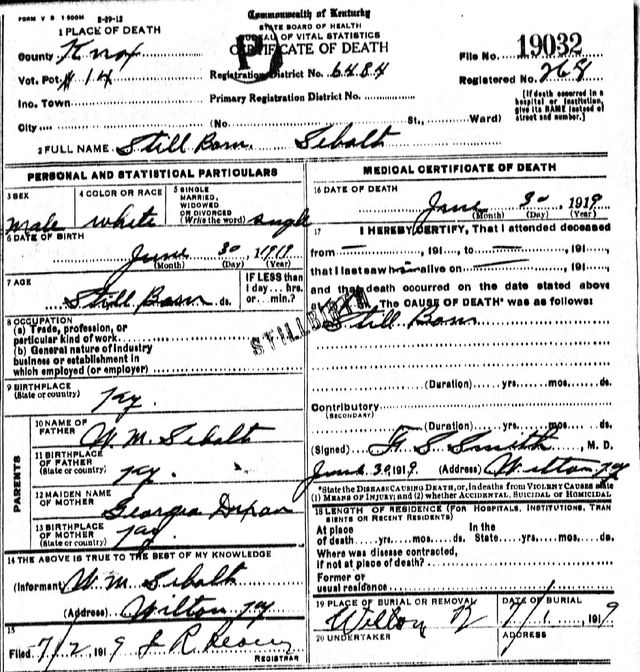 FORM V S 1 500M 2-29-12
Commonwealth of Kentucky
STATE BOARD OF HEALTH
BUREAU OF VITAL STATISTICS
CERTIFICATE OF DEATH
1 PLACE OF DEATH
County Knox
Vot. Pct # 14
Inc. Town
City (No. St., Ward)
Registration District No. 6484
Primary Registration District No.
File No. 19032
Registered No. 268
[If death occurred in a hospital or institution, give its NAME instead of street and number.]
2 FULL NAME Still Born Sebolt
PERSONAL AND STATISTICAL PARTICULARS
3 SEX male
4 COLOR OR RACE white
5 SINGLE MARRIED, WIDOWED OR DIVORCED (Write the word) single
6 DATE OF BIRTH
June 30, 1919
(Month) (Day) (Year)
7 AGE
Still Born ds.
IF LESS than 1 day... hrs. or... min.?
8 OCCUPATION
(a) Trade, profession, or particular kind of work
(b) General nature of industry business or establishment in which employed (or employer)
9 BIRTHPLACE (State or country) Ky.
PARENTS
10 NAME OF FATHER W. M. Sebolt
11 BIRTHPLACE OF FATHER (State or country) Ky.
12 MAIDEN NAME OF MOTHER Georgia
13 BIRTHPLACE OF MOTHER (State or country)
14 THE ABOVE IS TRUE TO THE BEST OF MY KNOWLEDGE
(Informant) W. M. Sebolt
(Address) Wilton Ky
15
Filed 7/2 1919 J. R.
REGISTRAR
MEDICAL CERTIFICATE OF DEATH
16 DATE OF DEATH
June 30 1919
(Month) (Day) (Year)
17 I HEREBY CERTIFY, That I attended deceased
from — , 191 , to — , 191 ,
that I last saw h alive on — , 191 ,
and that death occurred on the date stated above
at m. The CAUSE OF DEATH* was as follows:
Still Born
STILLBIRTH
(Duration) yrs. mos. ds.
Contributory
(SECONDARY)
(Duration) yrs. mos. ds.
(Signed) G S Smith, M. D.
June 30, 1919. (Address) Wilton Ky
*State the DISEASE CAUSING DEATH, or, in deaths from VIOLENT CAUSES state (1) MEANS OF INJURY; and (2) whether ACCIDENTAL, SUICIDAL OR HOMICIDAL
18 LENGTH OF RESIDENCE (FOR HOSPITALS, INSTITUTIONS, TRANSIENTS OR RECENT RESIDENTS)
At place of death yrs. mos. ds. In the State yrs. mos. ds.
Where was disease contracted, if not at place of death?
Former or usual residence
19 PLACE OF BURIAL OR REMOVAL Wilton Ky
DATE OF BURIAL 7/1 1919
20 UNDERTAKER
ADDRESS